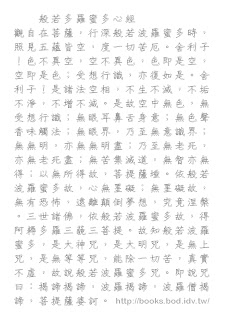 般若多羅蜜多心經
觀自在菩薩，行深般若波羅蜜多時，
照見五蘊皆空，度一切苦厄。舍利子
！色不異空，空不異色，色即是空，
空即是色；受想行識，亦復如是。舍
利子！是諸法空相，不生不滅，不垢
不淨，不增不減。是故空中無色，無
受想行識；無眼耳鼻舌身意；無色聲
香味觸法；無眼界，乃至無意識界；
無無明，亦無無明盡；乃至無老死，
亦無老死盡；無苦集滅道，無智亦無
得；以無所得故，菩提薩埵。依般若
波羅蜜多故，心無罣礙；無罣礙故，
無有恐怖，遠離顛倒夢想，究竟涅槃
。三世諸佛，依般若波羅蜜多故，得
阿耨多羅三藐三菩提。故知般若波羅
蜜多，是大神咒，是大明咒，是無上
咒，是無等等咒，能除一切苦，真實
不虛，故說般若波羅蜜多咒。即說咒
曰：揭諦揭諦，波羅揭諦，波羅僧揭
諦，菩提薩婆訶。 http://books.bod.idv.tw/